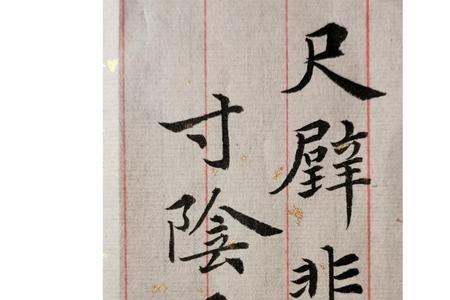 尺璧非
寸陰